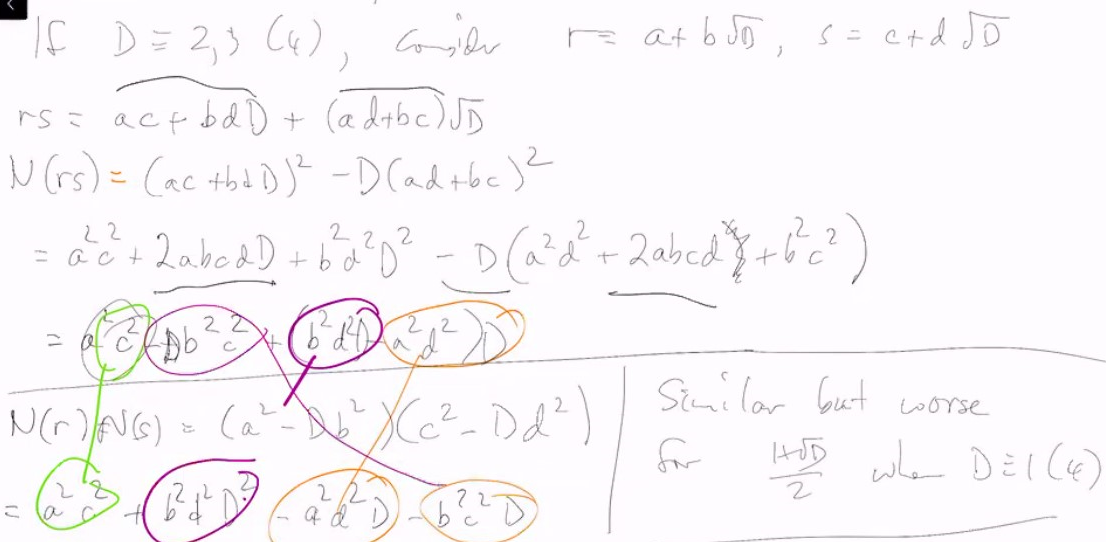 If D ≡ 2,3 (4), Consider r = a+b√D, s = c+d√D
rs = ac+bdD + (ad+bc)√D
N(rs) = (ac+bdD)² - D(ad+bc)²
= a²c² + 2abcdD + b²d²D² - D(a²d² + 2abcd + b²c²)
= a²c² - Db²c² + (b²d²D - a²d²)D
N(r)N(s) = (a² - Db²)(c² - Dd²)
= a²c² + b²d²D² - a²d²D - b²c²D
Similar but worse
for (1+√D)/2 when D ≡ 1 (4)